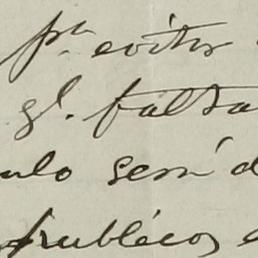 pª evitar
gl. falta
ulo será d
publicos e